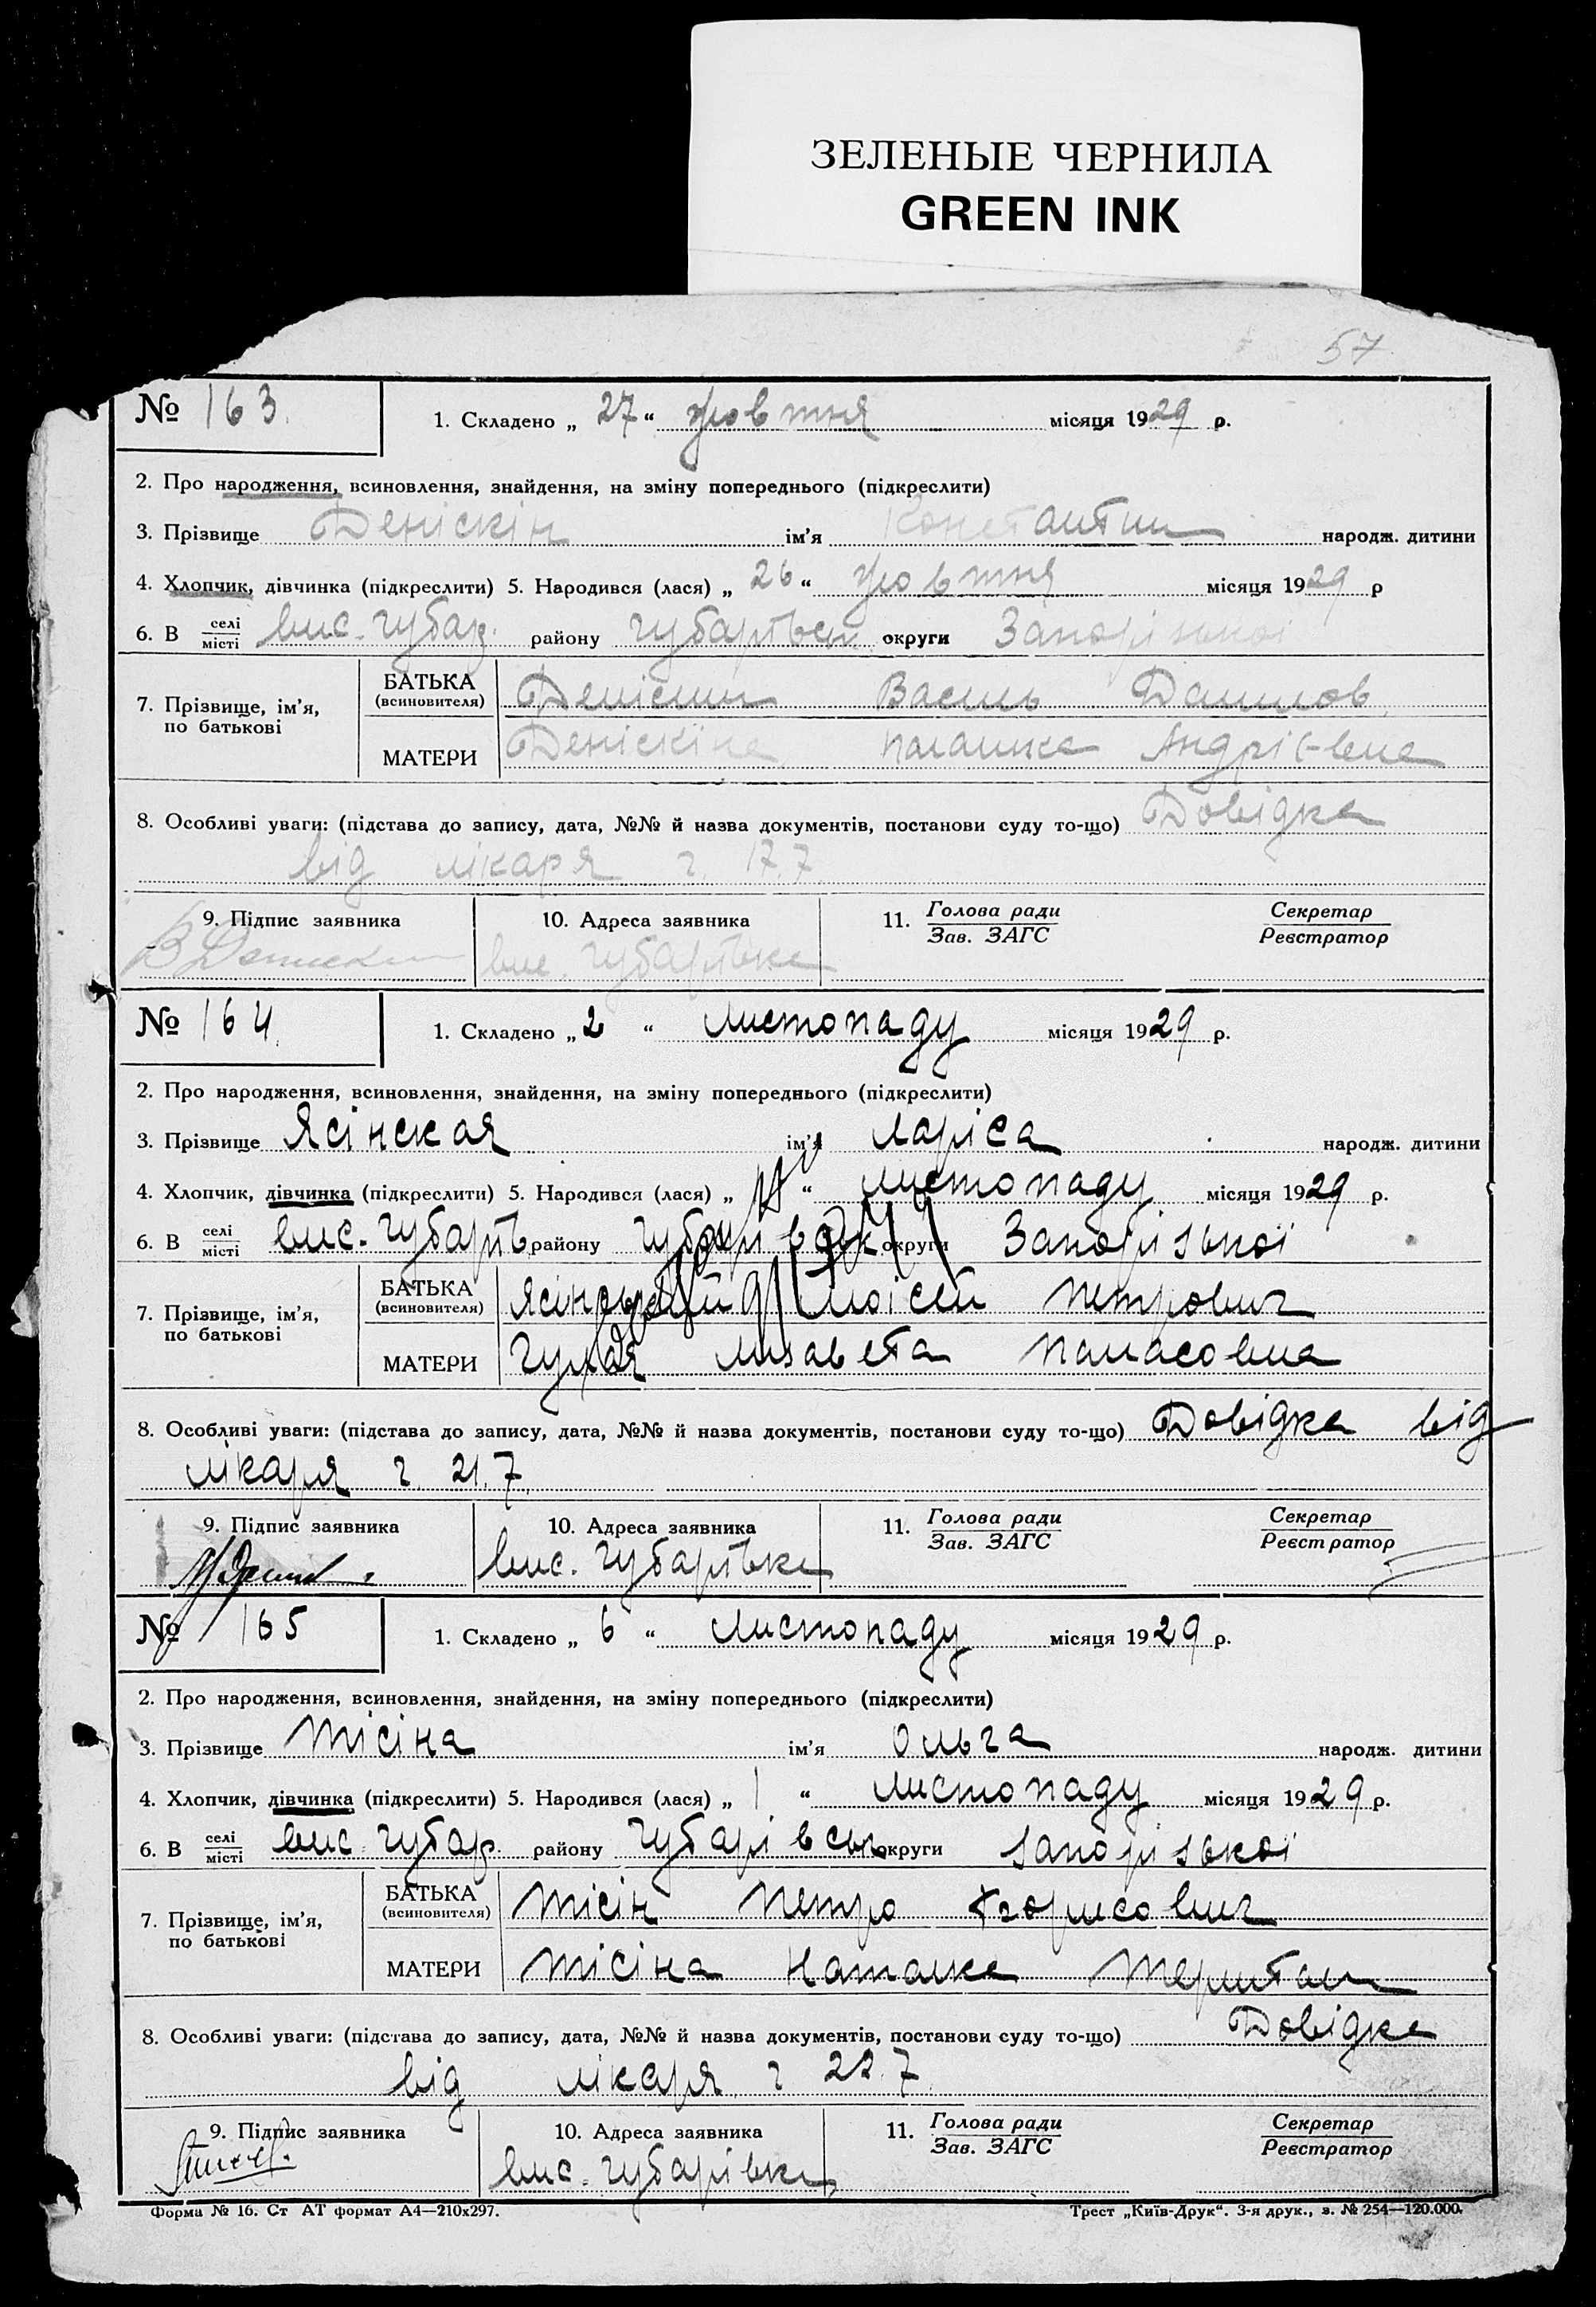 ЗЕЛЕНЫЕ ЧЕРНИЛА
GREEN INK
57
№ 163. 1. Складено „ 27 “ жовтня місяця 1929 р.
2. Про народження, всиновлення, знайдення, на зміну попереднього (підкреслити)
3. Прізвище Деніскін ім'я Констаптин народж. дитини
4. Хлопчик, дівчинка (підкреслити) 5. Народився (лася) „ 26 “ жовтня місяця 1929 р
6. В селі/місті вис. Губар. району Губарівськ. округи Запорізької
7. Прізвище, ім'я, по батькові
БАТЬКА (всиновителя) Деніскин Василь Данилов.
МАТЕРИ Деніскіна Палашка Андрієвна
8. Особливі уваги: (підстава до запису, дата, №№ й назва документів, постанови суду то-що) Довідка
від лікаря г. 17.7.
9. Підпис заявника 10. Адреса заявника 11. Голова ради/Зав. ЗАГС Секретар/Реєстратор
В Денискин вис. Губарівка
№ 164. 1. Складено „ 2 “ листопаду місяця 1929 р.
2. Про народження, всиновлення, знайдення, на зміну попереднього (підкреслити)
3. Прізвище Ясінская ім'я Ларіса народж. дитини
4. Хлопчик, дівчинка (підкреслити) 5. Народився (лася) „ “ листопаду місяця 1929 р.
6. В селі/місті вис. Губарів. району округи Запорізької
7. Прізвище, ім'я, по батькові
БАТЬКА (всиновителя) Мойсей Петрович
МАТЕРИ Лизавета Панасовна
8. Особливі уваги: (підстава до запису, дата, №№ й назва документів, постанови суду то-що) Довідка від
лікаря г. 21.7.
9. Підпис заявника 10. Адреса заявника 11. Голова ради/Зав. ЗАГС Секретар/Реєстратор
вис. Губарівка
№ 165 1. Складено „ 6 “ листопаду місяця 1929 р.
2. Про народження, всиновлення, знайдення, на зміну попереднього (підкреслити)
3. Прізвище Тісіна ім'я Ольга народж. дитини
4. Хлопчик, дівчинка (підкреслити) 5. Народився (лася) „ 1 “ листопаду місяця 1929 р.
6. В селі/місті вис. Губар. району Губарівськ. округи Запорізької
7. Прізвище, ім'я, по батькові
БАТЬКА (всиновителя) Тісін Петро Борисович
МАТЕРИ Тісіна Наталка
8. Особливі уваги: (підстава до запису, дата, №№ й назва документів, постанови суду то-що) Довідка
від лікаря г 22.7.
9. Підпис заявника 10. Адреса заявника 11. Голова ради/Зав. ЗАГС Секретар/Реєстратор
вис. Губарівка
Форма № 16. Ст АТ формат А4—210х297. Трест „Київ-Друк“. 3-я друк., з. № 254—120.000.